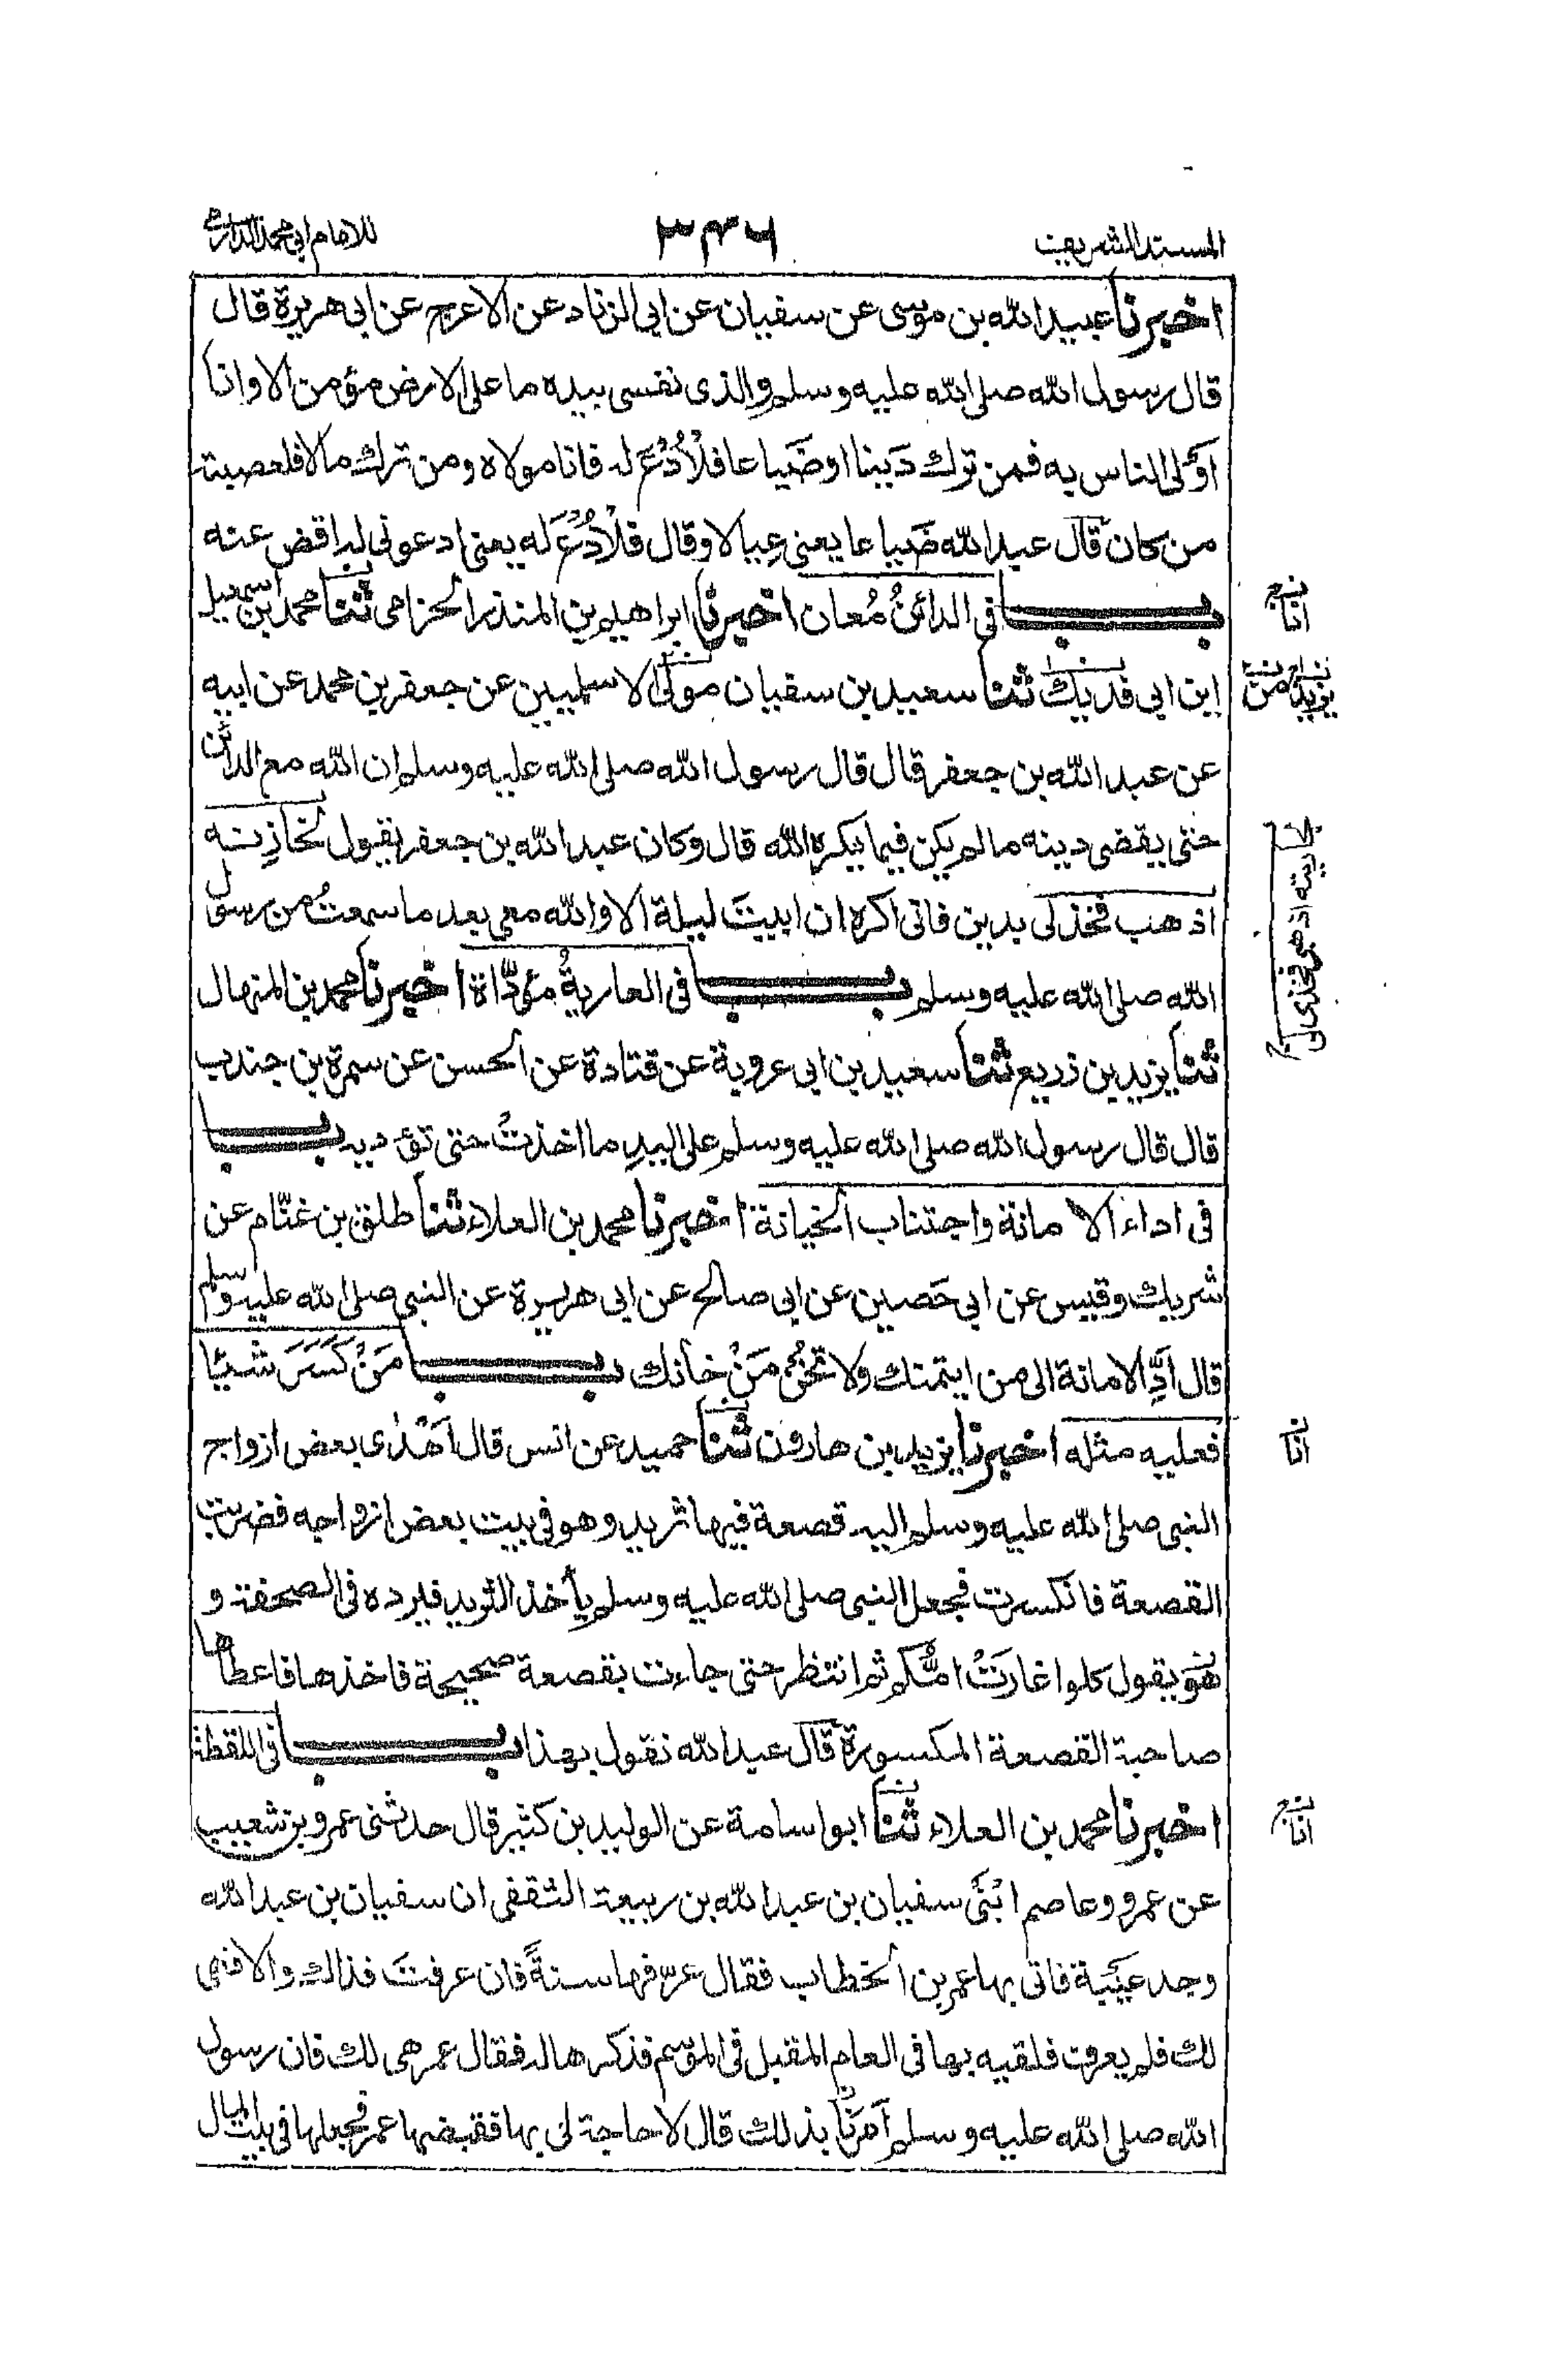 المسند الشريف ٣٤٦ للامام ابي محمد الدارمي
اخبرنا عبيد الله بن موسى عن سفيان عن ابي الزناد عن الاعرج عن ابي هريرة قال
قال رسول الله صلى الله عليه وسلم والذى نفسى بيده ما على الارض مؤمن الا وانا
اَوْلى الناس به فمن ترك دَينا او ضَياعا فلْاُدْعَ له فانا مولاه ومن ترك مالا فلعصبته
من كان قال عبد الله ضَياعا يعنى عِيالا وقال فلْاُدْعَ له يعنى ادعونى له اقض عنه
بـــاب فى الدائنُ مُعان اخبرنا ابراهيم بن المنذر الحزامى ثنا محمد بن اسمعيل
ابن ابى فديك ثنا سعيد بن سفيان مولى الاسلميين عن جعفر بن محمد عن ابيه
عن عبد الله بن جعفر قال قال رسول الله صلى الله عليه وسلم ان الله مع الدائن
حتى يقضى دينه ما لم يكن فيما يكره الله قال وكان عبد الله بن جعفر يقول لخازنه
اذهب فخذ لى بدين فانى اكره ان ابيتَ ليلة الا والله معى بعد ما سمعتُ من رسول
الله صلى الله عليه وسلم بـــاب فى العاريةُ مؤدّاة اخبرنا محمد بن المنهال
ثنا يزيد بن زريع ثنا سعيد بن ابى عروبة عن قتادة عن الحسن عن سمرة بن جندب
قال قال رسول الله صلى الله عليه وسلم على اليدِ ما اخذتْ حتى تؤديه بـــاب
فى اداء الامانة واجتناب الخيانة اخبرنا محمد بن العلاء ثنا طلق بن غنّام عن
شريك وقيس عن ابى حَصين عن ابى صالح عن ابى هريرة عن النبى صلى الله عليه وسلم
قال اَدِّ الامانة الى من ايتمنك ولا تَخُنْ مَنْ خانك بـــاب مَنْ كَسَرَ شيئا
فعليه مثله اخبرنا يزيد بن هارون ثنا حميد عن انس قال اَهْدٰى بعض ازواج
النبى صلى الله عليه وسلم اليه قصعة فيها ثريد وهو فى بيت بعض ازواجه فضربت
القصعة فانكسرت فجعل النبى صلى الله عليه وسلم يأخذ الثريد فيرده فى الصحفة و
هو يقول كلوا غارَتْ امُّكم ثم انتظر حتى جاءت بقصعة صحيحة فاخذها فاعطاها
صاحبة القصعة المكسورة قال عبد الله نقول بهذا بـــاب فى اللقطة
اخبرنا محمد بن العلاء ثنا ابو اسامة عن الوليد بن كثير قال حدثنى عمرو بن شعيب
عن عمرو وعاصم ابْنَىْ سفيان بن عبد الله بن ربيعة الثقفى ان سفيان بن عبد الله
وجد عَيْبَة فاتى بها عمر بن الخطاب فقال عرّفها سنةً فان عرفتَ فذاك والا فهى
لك فلم يعرف فلقيه بها فى العام المقبل فى الموسم فذكرها له فقال عمر هى لك فان رسول
الله صلى الله عليه وسلم اَمَرَنا بذلك قال لا حاجة لى بها فقبضها عمر فجعلها فى بيت المال
انا
يزيد
من
لخازينه اذهبى فخذى لى
انا
انا